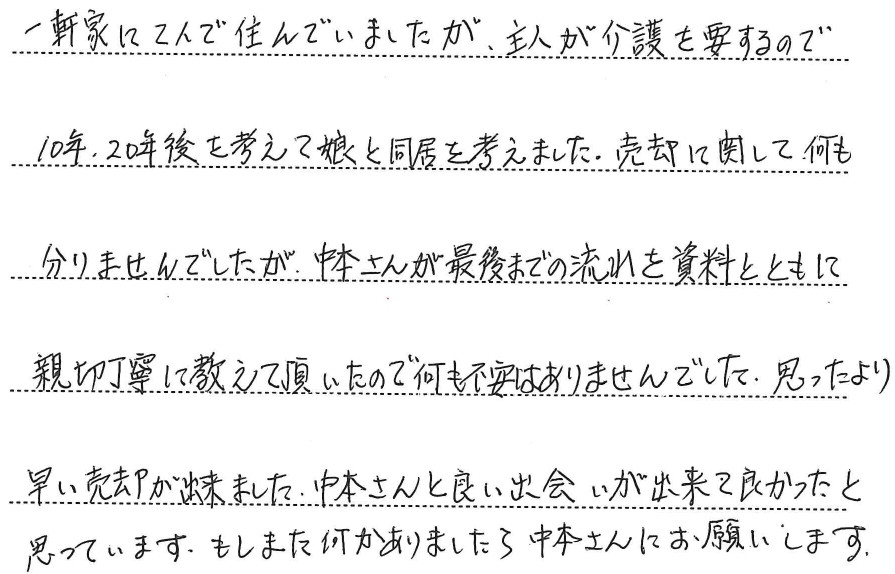 一軒家に2人で住んでいましたが、主人が介護を要するので
10年、20年後を考えて娘と同居を考えました。売却に関して何も
分りませんでしたが、中本さんが最後までの流れを資料とともに
親切丁寧に教えて頂いたので何も不安はありませんでした。思ったより
早い売却が出来ました。中本さんと良い出会いが出来て良かったと
思っています。もしまた何かありましたら中本さんにお願いします。